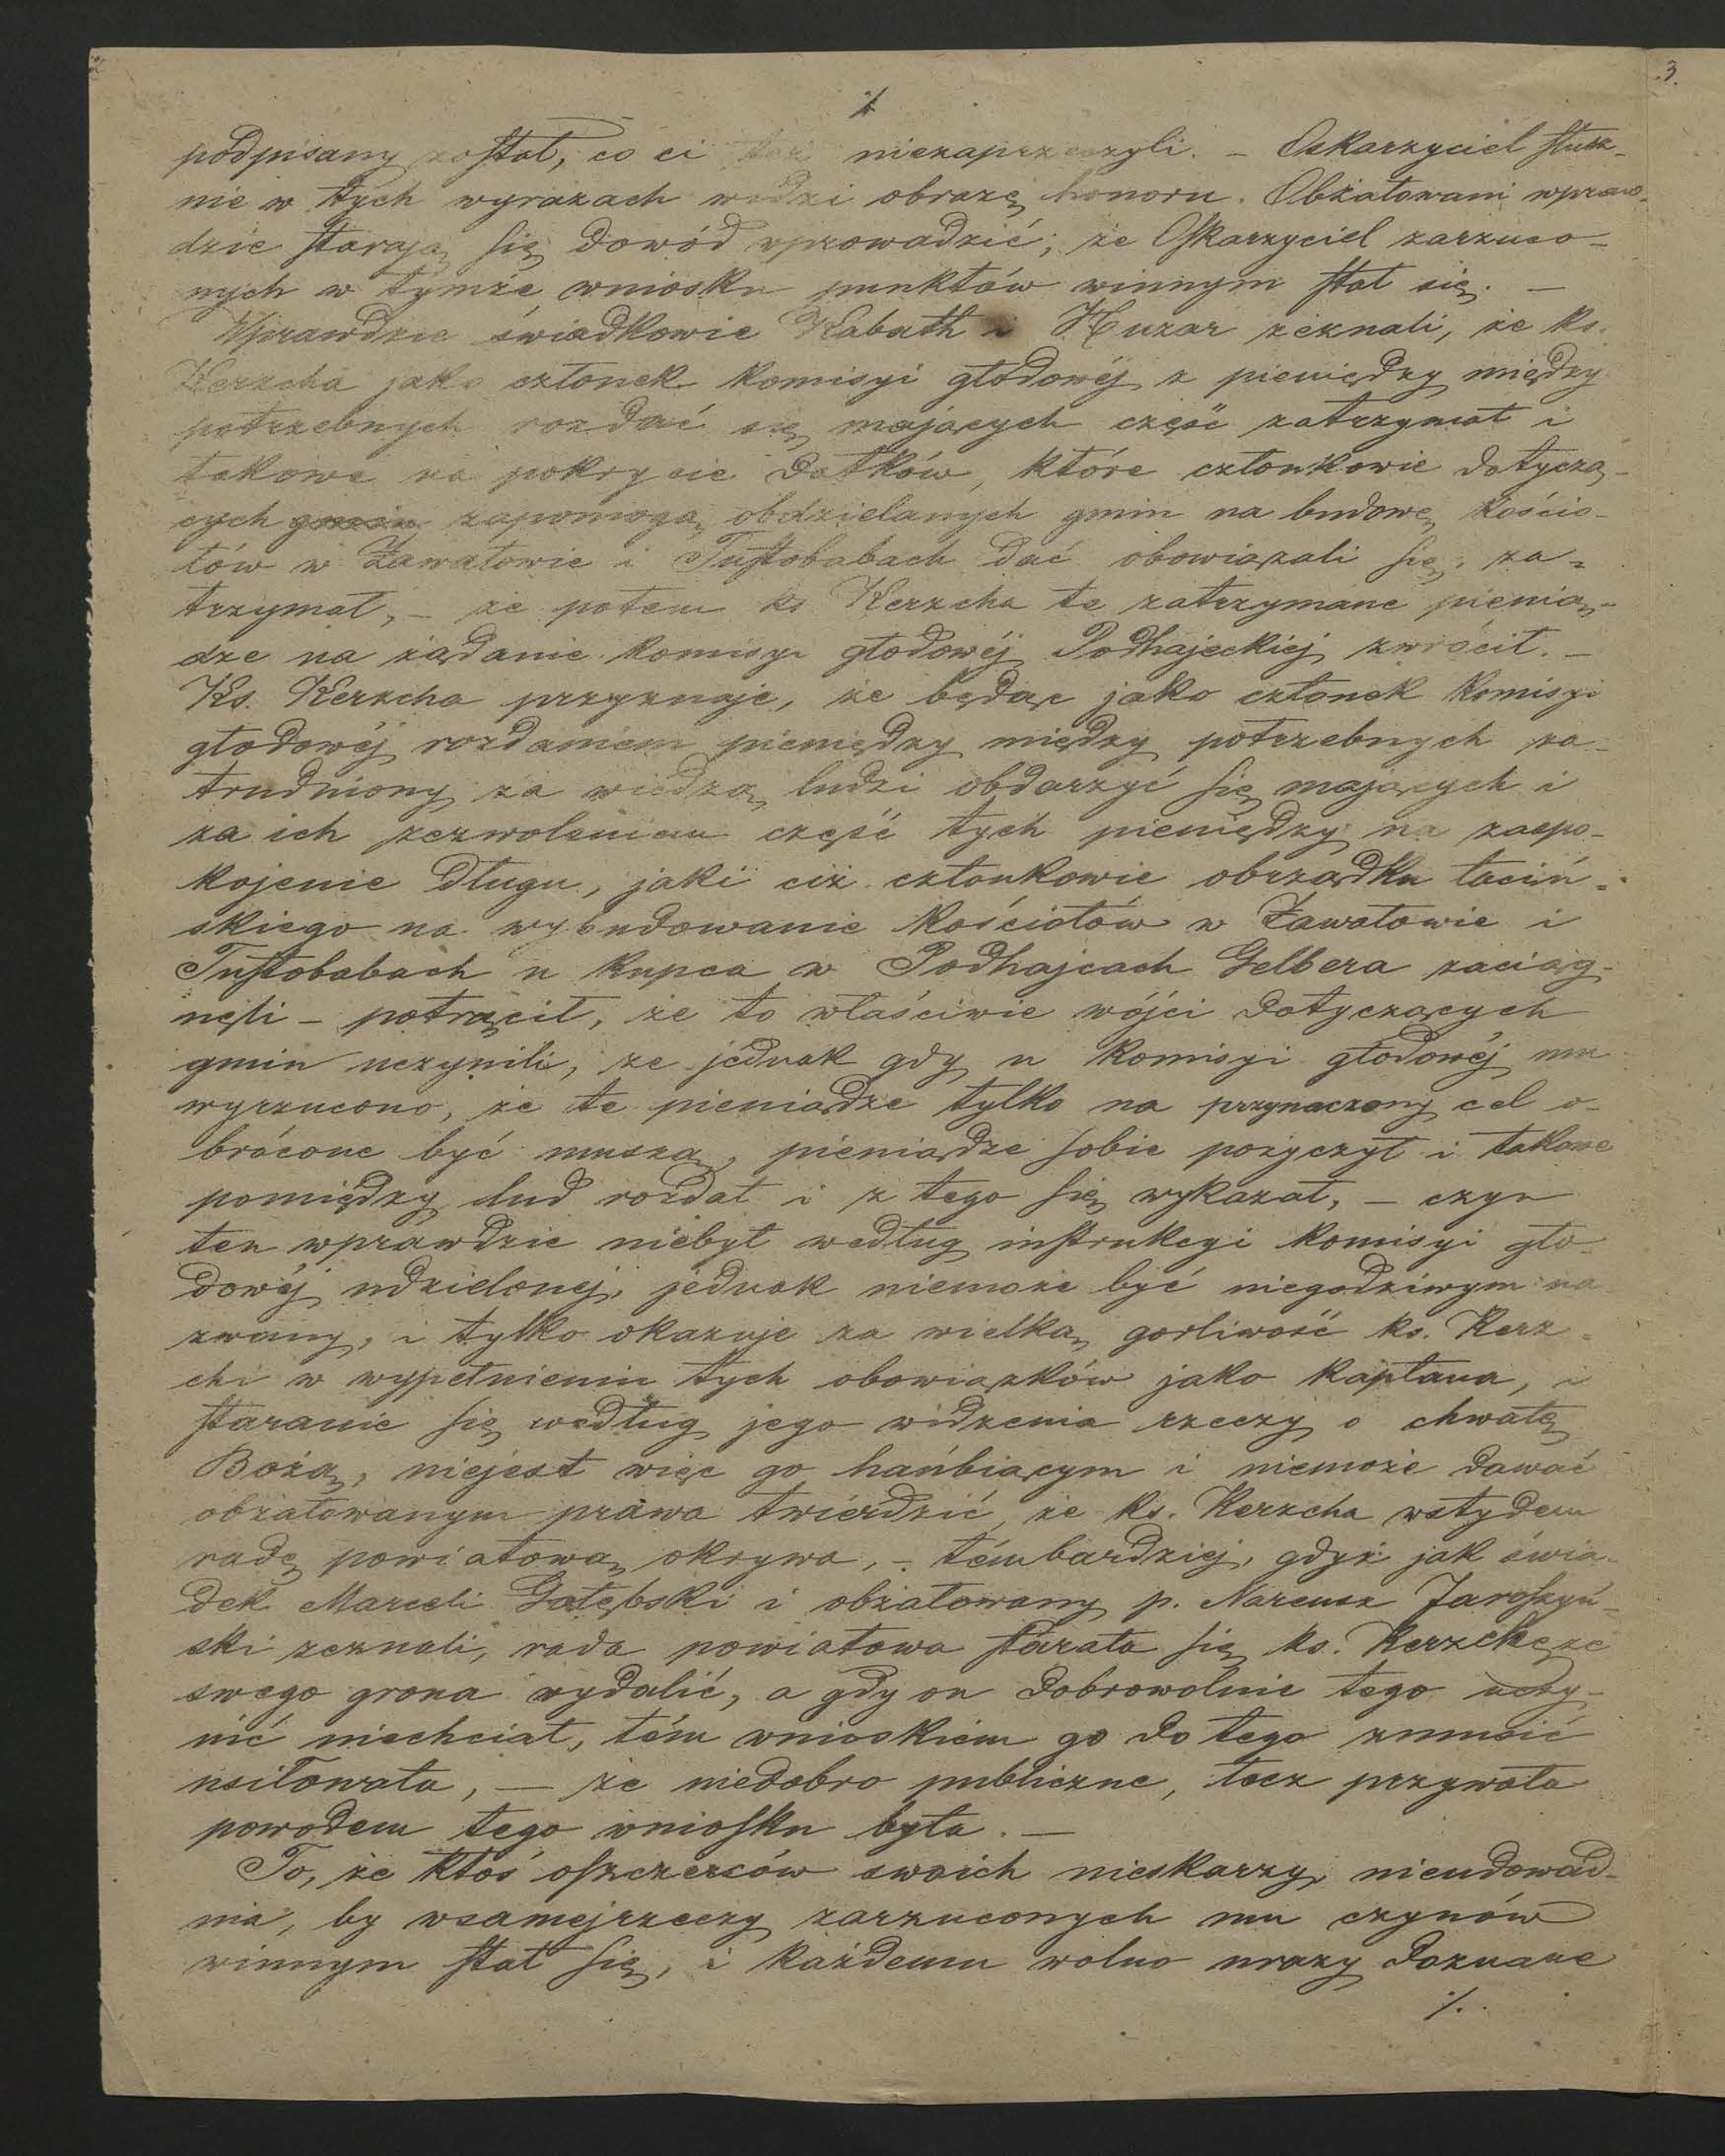 2
3.
./.
podpisany został, co ci też niezaprzeczyli. – Oskarzyciel słusz-
nie w tych wyrazach widzi obrazę honoru. Obżałowani wpraw-
dzie starają się dowód wprowadzić; że Oskarzyciel zarzuco-
nych w tymże wniosku punktów winnym stał się. –
Wprawdzie świadkowie Kabath i Huzar zeznali, że ks.
Kerzcha jako członek komisyi głodowéj z pieniędzy między
potrzebnych rozdać się mających część zatrzymał i
takowe na pokrycie datków, które członkowie dotyczą-
cych zapomogą obdzielanych gmin na budowę kościo-
łów w Zawałowie i Tustobabach dać obowiązali się, za-
trzymał, – że potem ks Kerzcha te zatrzymane pienią-
dze na żądanie komisyi głodowéj Podhajeckiej zwrócił. –
Ks. Kerzcha przyznaje, że będąc jako członek komisyi
głodowéj rozdaniem pieniędzy między potrzebnych za-
trudniony za wiedzą ludzi obdarzyć się mających i
za ich zezwoleniem część tych pieniędzy na zaspo-
kojenie długu, jaki ciż członkowie obrządku łaciń-
skiego na wybudowanie kościołów w Zawałowie i
Tustobabach u kupca w Podhajcach Gelbera zaciąg-
nęli – potrącił, że to właściwie wójci dotyczących
gmin uczynili, że jednak gdy u komisyi głodowéj mu
wyrzucono, że te pieniądze tylko na przynaczony cel o-
brócone być muszą, pieniądze sobie pożyczył i takowe
pomiędzy lud rozdał i z tego się wykazał, – czyn
ten wprawdzie niebył według instrukcyi komisyi gło-
dowéj udzielonej, jednak niemoże być niegodziwym na
zwany, i tylko okazuje za wielką gorliwość ks. Kerz-
chi w wypełnieniu tych obowiązków jako kapłana, i
staranie się według jego widzenia rzeczy o chwałę
Bożą, niejest więc go hańbiącym i niemoże dawać
obżałowanym prawa twierdzić, że ks. Kerzcha wstydem
radę powiatową okrywa, – témbardziej, gdyż jak świa-
dek Marceli Gołębski i obżałowany p. Narcuz Jaroszyń-
ski zeznali, rada powiatowa starała się ks. Kerzchę ze
swego grona wydalić, a gdy on dobrowolnie tego uczy-
nić niechciał, tém wnioskiem go do tego zmusić
usiłowała, – że niedobro publiczne, lecz prywata
powodem tego wniosku była. –
To, że ktoś oszczerców swoich nieskarzy, nieudowad-
nia, by wsamejrzeczy zarzuconych mu czynów
winnym stał się, i każdemu wolno urazy doznane
./.